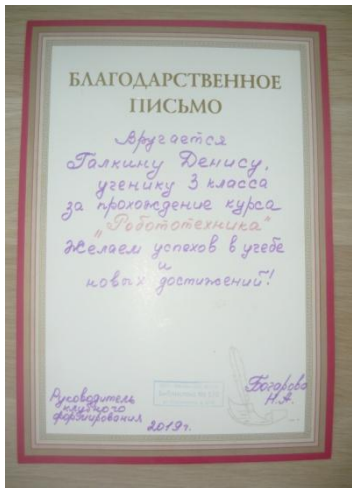 БЛАГОДАРСТВЕННОЕ
ПИСЬМО
Вручается
Галкину Денису,
ученику 3 класса
за прохождение курса
„Робототехника“
Желаем успехов в учебе
и
новых достижений!
Руководитель
клубного
формирования
Богарова
Н.А.
2019г.